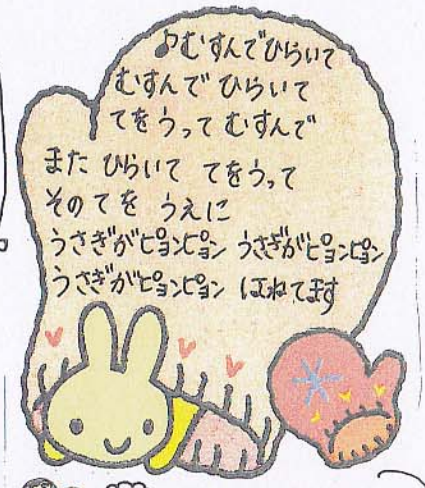 ♪むすんでひらいて
むすんで ひらいて
てをうって むすんで
また ひらいて てをうって
そのてを うえに
うさぎがピョンピョン うさぎがピョンピョン
うさぎがピョンピョン はねてます